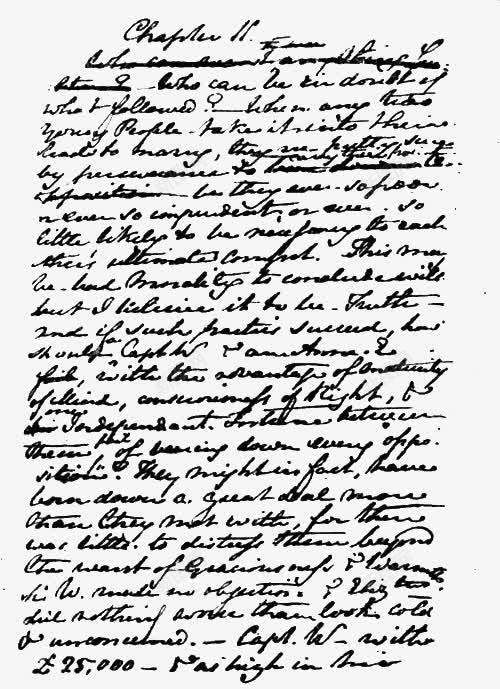 Chapter 11.
Who can
Who can be in doubt of
what followed? — When any two
Young People take it into their
heads to marry, they are pretty sure
by perseverance to carry their point
opposition — be they ever so poor
or ever so imprudent, or ever so
little likely to be necessary to each
other's ultimate comfort. This may
be bad Morality to conclude with
but I beleive it to be Truth —
and if such parties succeed, how
should a Capt. W— & an Anne E—
fail, with the advantage of Maturity
of Mind, consciousness of Right, &
one Independant Fortune between
them, fail of bearing down every oppo-
sition? They might in fact, have
born down a great deal more
than they met with, for there
was little to distress them beyond
the want of Graciousness & Warmth
Sir W. made no objection, & Eliz:
did nothing worse than look cold
& unconcerned. — Capt. W— with
£ 25,000 — & as high in his